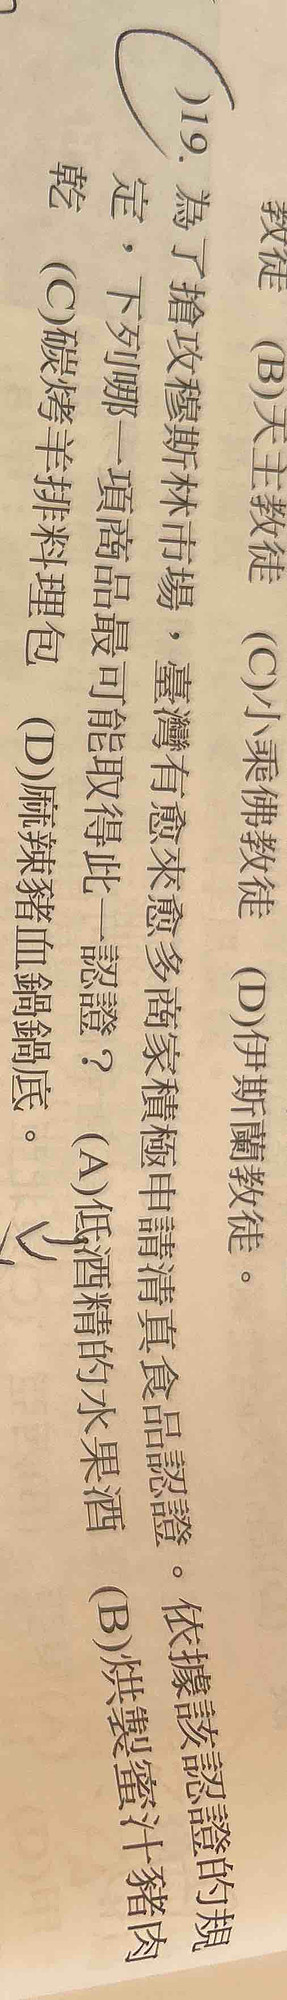 教徒 (B)天主教徒 (C)小乘佛教徒 (D)伊斯蘭教徒。
)19. 為了搶攻穆斯林市場，臺灣有愈來愈多商家積極申請清真食品認證。依據該認證的規
定，下列哪一項商品最可能取得此一認證？ (A)低酒精的水果酒 (B)烘製蜜汁豬肉
乾 (C)碳烤羊排料理包 (D)麻辣豬血鍋鍋底。